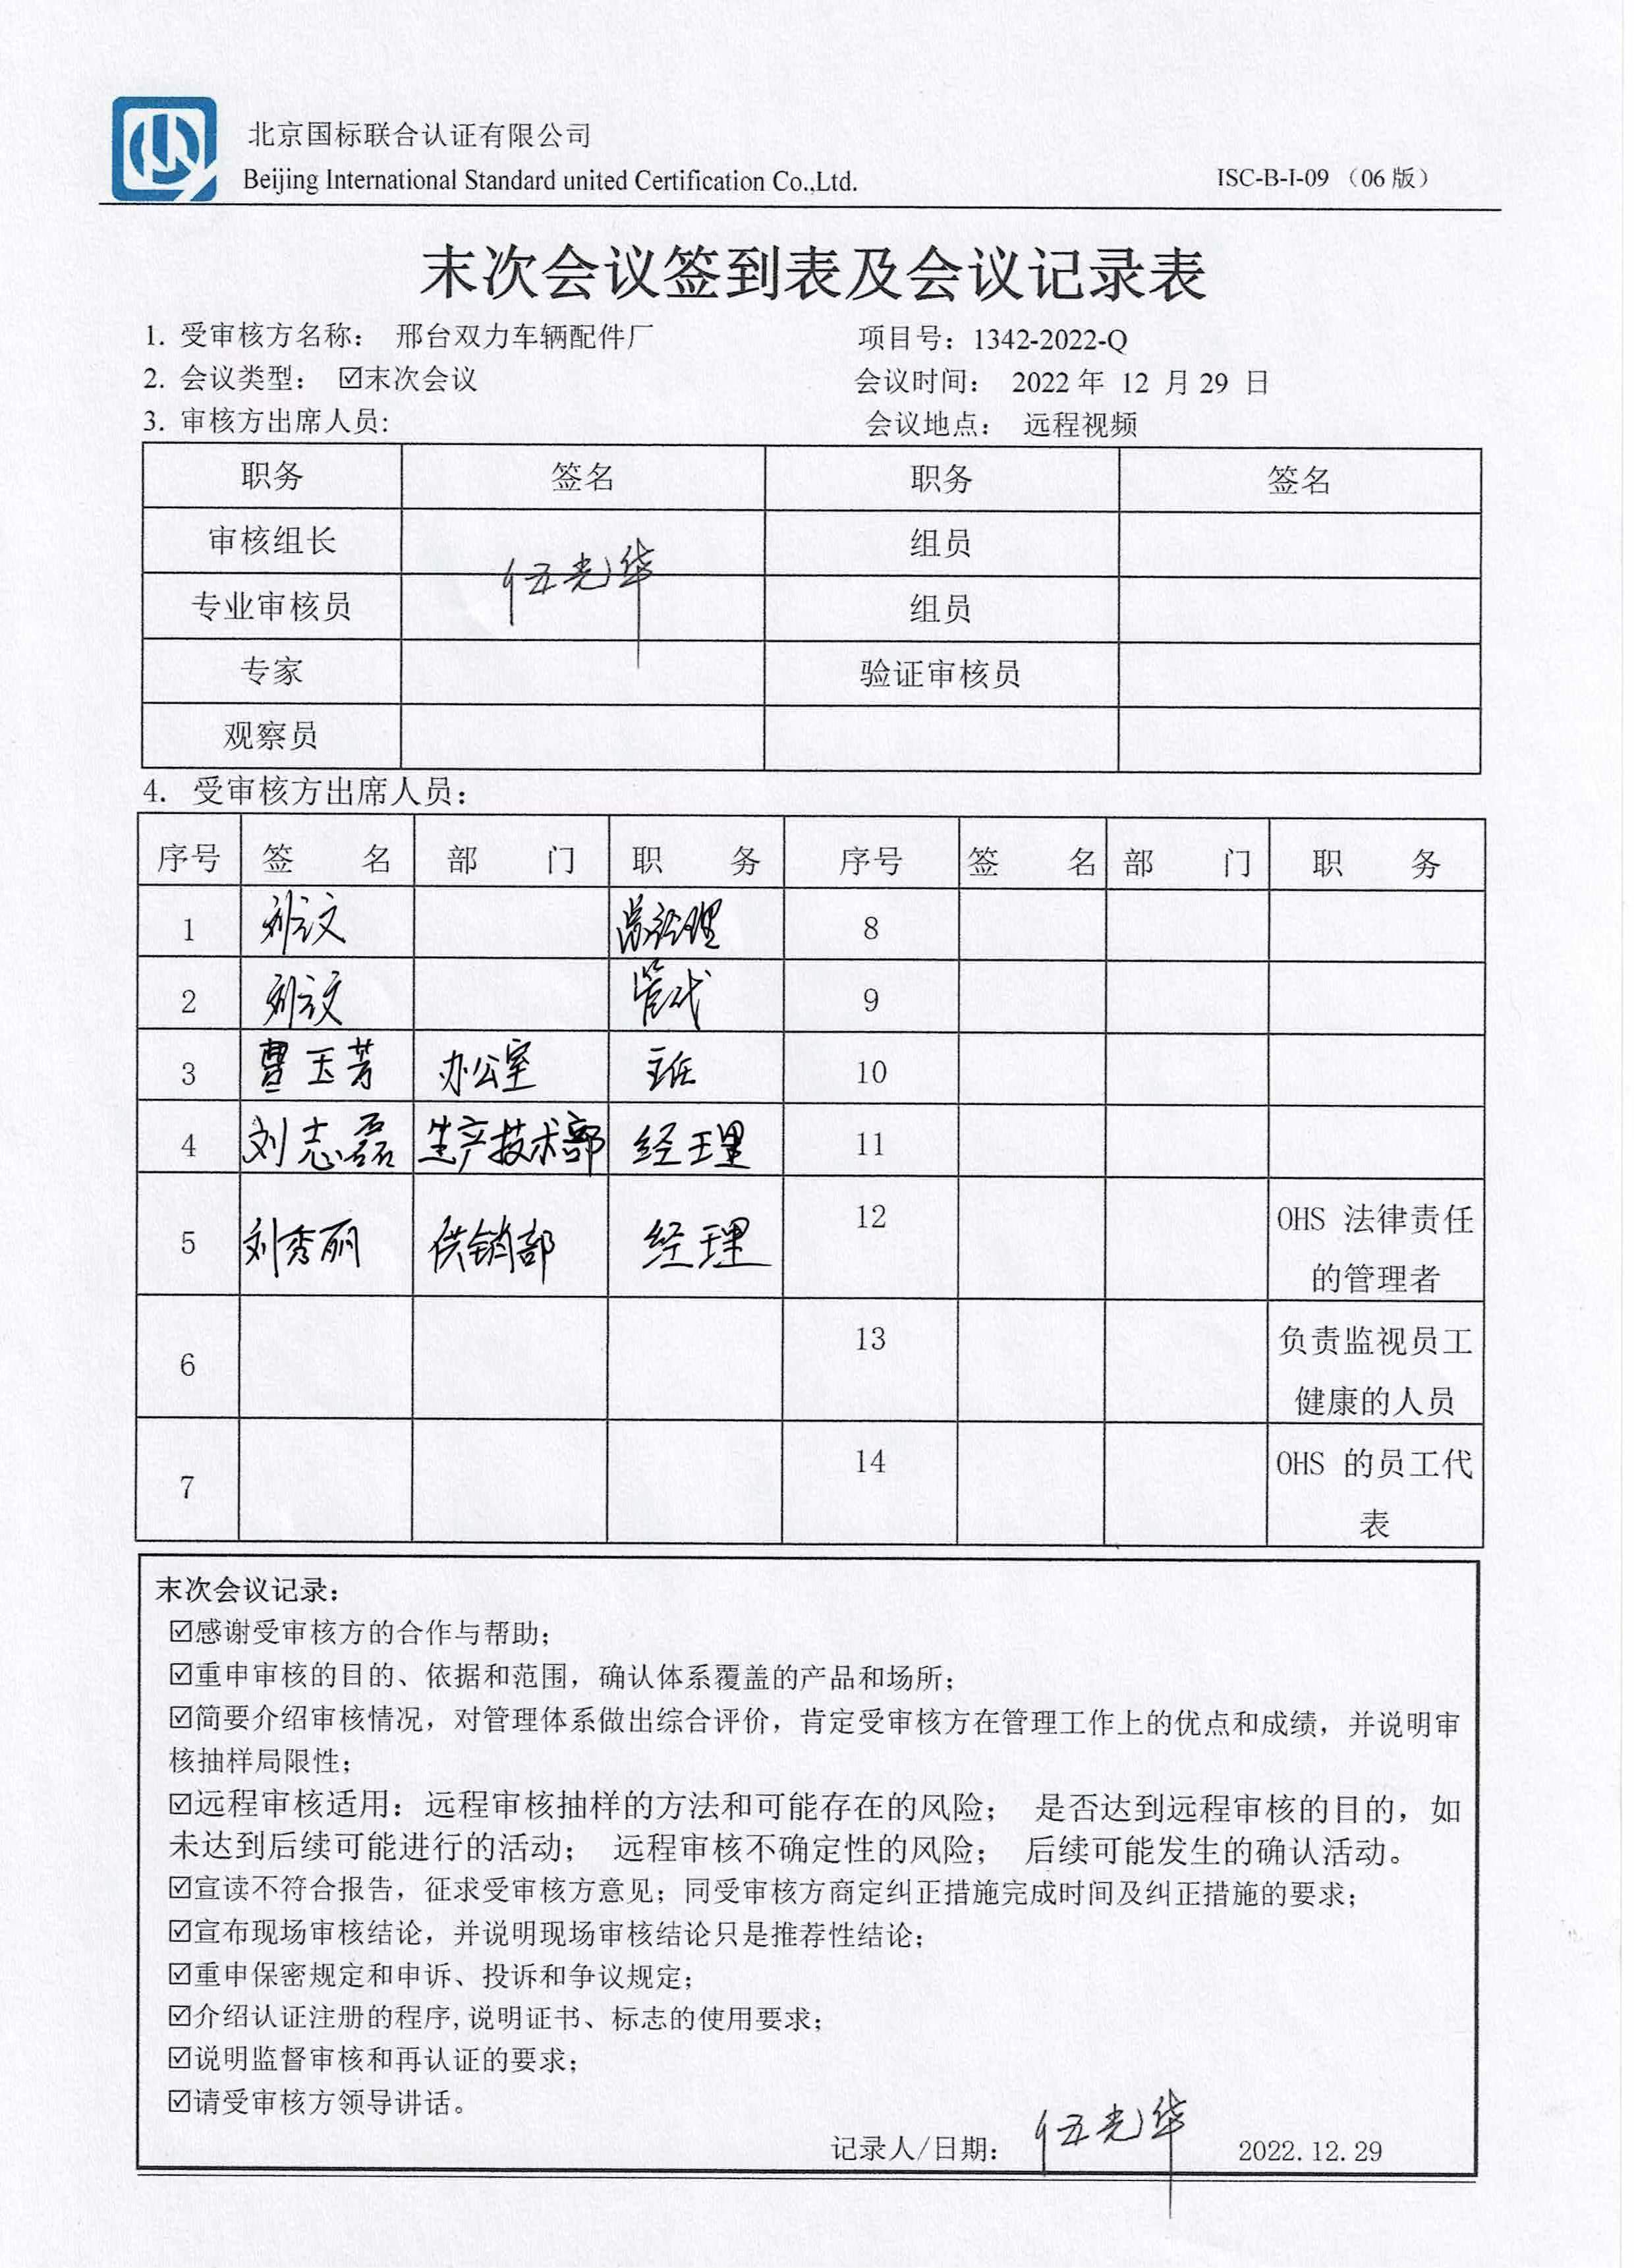 北京国标联合认证有限公司
Beijing International Standard united Certification Co.,Ltd.
ISC-B-I-09 （06 版）
末次会议签到表及会议记录表
1. 受审核方名称： 邢台双力车辆配件厂 项目号：1342-2022-Q
2. 会议类型： ☑末次会议 会议时间： 2022 年 12 月 29 日
3. 审核方出席人员: 会议地点： 远程视频
职务 签名 职务 签名
审核组长 伍光华 组员
专业审核员 组员
专家 验证审核员
观察员
4. 受审核方出席人员：
序号 签 名 部 门 职 务 序号 签 名 部 门 职 务
1 总经理 8
2 管代 9
3 曹玉芳 办公室 主任 10
4 刘志磊 生产技术部 经理 11
5 刘秀丽 供销部 经理 12 OHS 法律责任
的管理者
6 13 负责监视员工
健康的人员
7 14 OHS 的员工代
表
末次会议记录：
☑感谢受审核方的合作与帮助；
☑重申审核的目的、依据和范围，确认体系覆盖的产品和场所；
☑简要介绍审核情况，对管理体系做出综合评价，肯定受审核方在管理工作上的优点和成绩，并说明审
核抽样局限性；
☑远程审核适用：远程审核抽样的方法和可能存在的风险； 是否达到远程审核的目的，如
未达到后续可能进行的活动； 远程审核不确定性的风险； 后续可能发生的确认活动。
☑宣读不符合报告，征求受审核方意见；同受审核方商定纠正措施完成时间及纠正措施的要求；
☑宣布现场审核结论，并说明现场审核结论只是推荐性结论；
☑重申保密规定和申诉、投诉和争议规定；
☑介绍认证注册的程序,说明证书、标志的使用要求；
☑说明监督审核和再认证的要求；
☑请受审核方领导讲话。
记录人/日期： 伍光华 2022.12.29